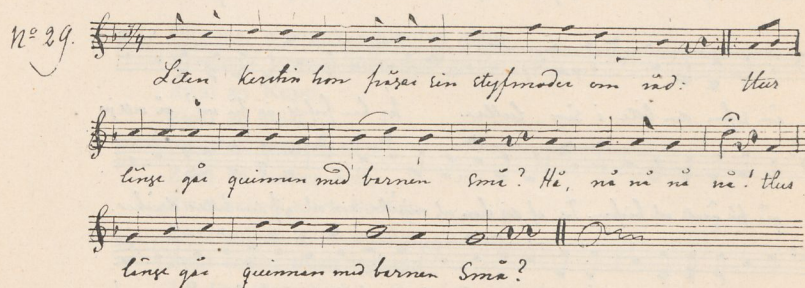 Nº 29.
Liten Kerstin hon frågar sin styfmoder om råd: Hur
länge går quinnan med barnen små? Hå, nå nå nå nå! Hur
länge går quinnan med barnen Små?